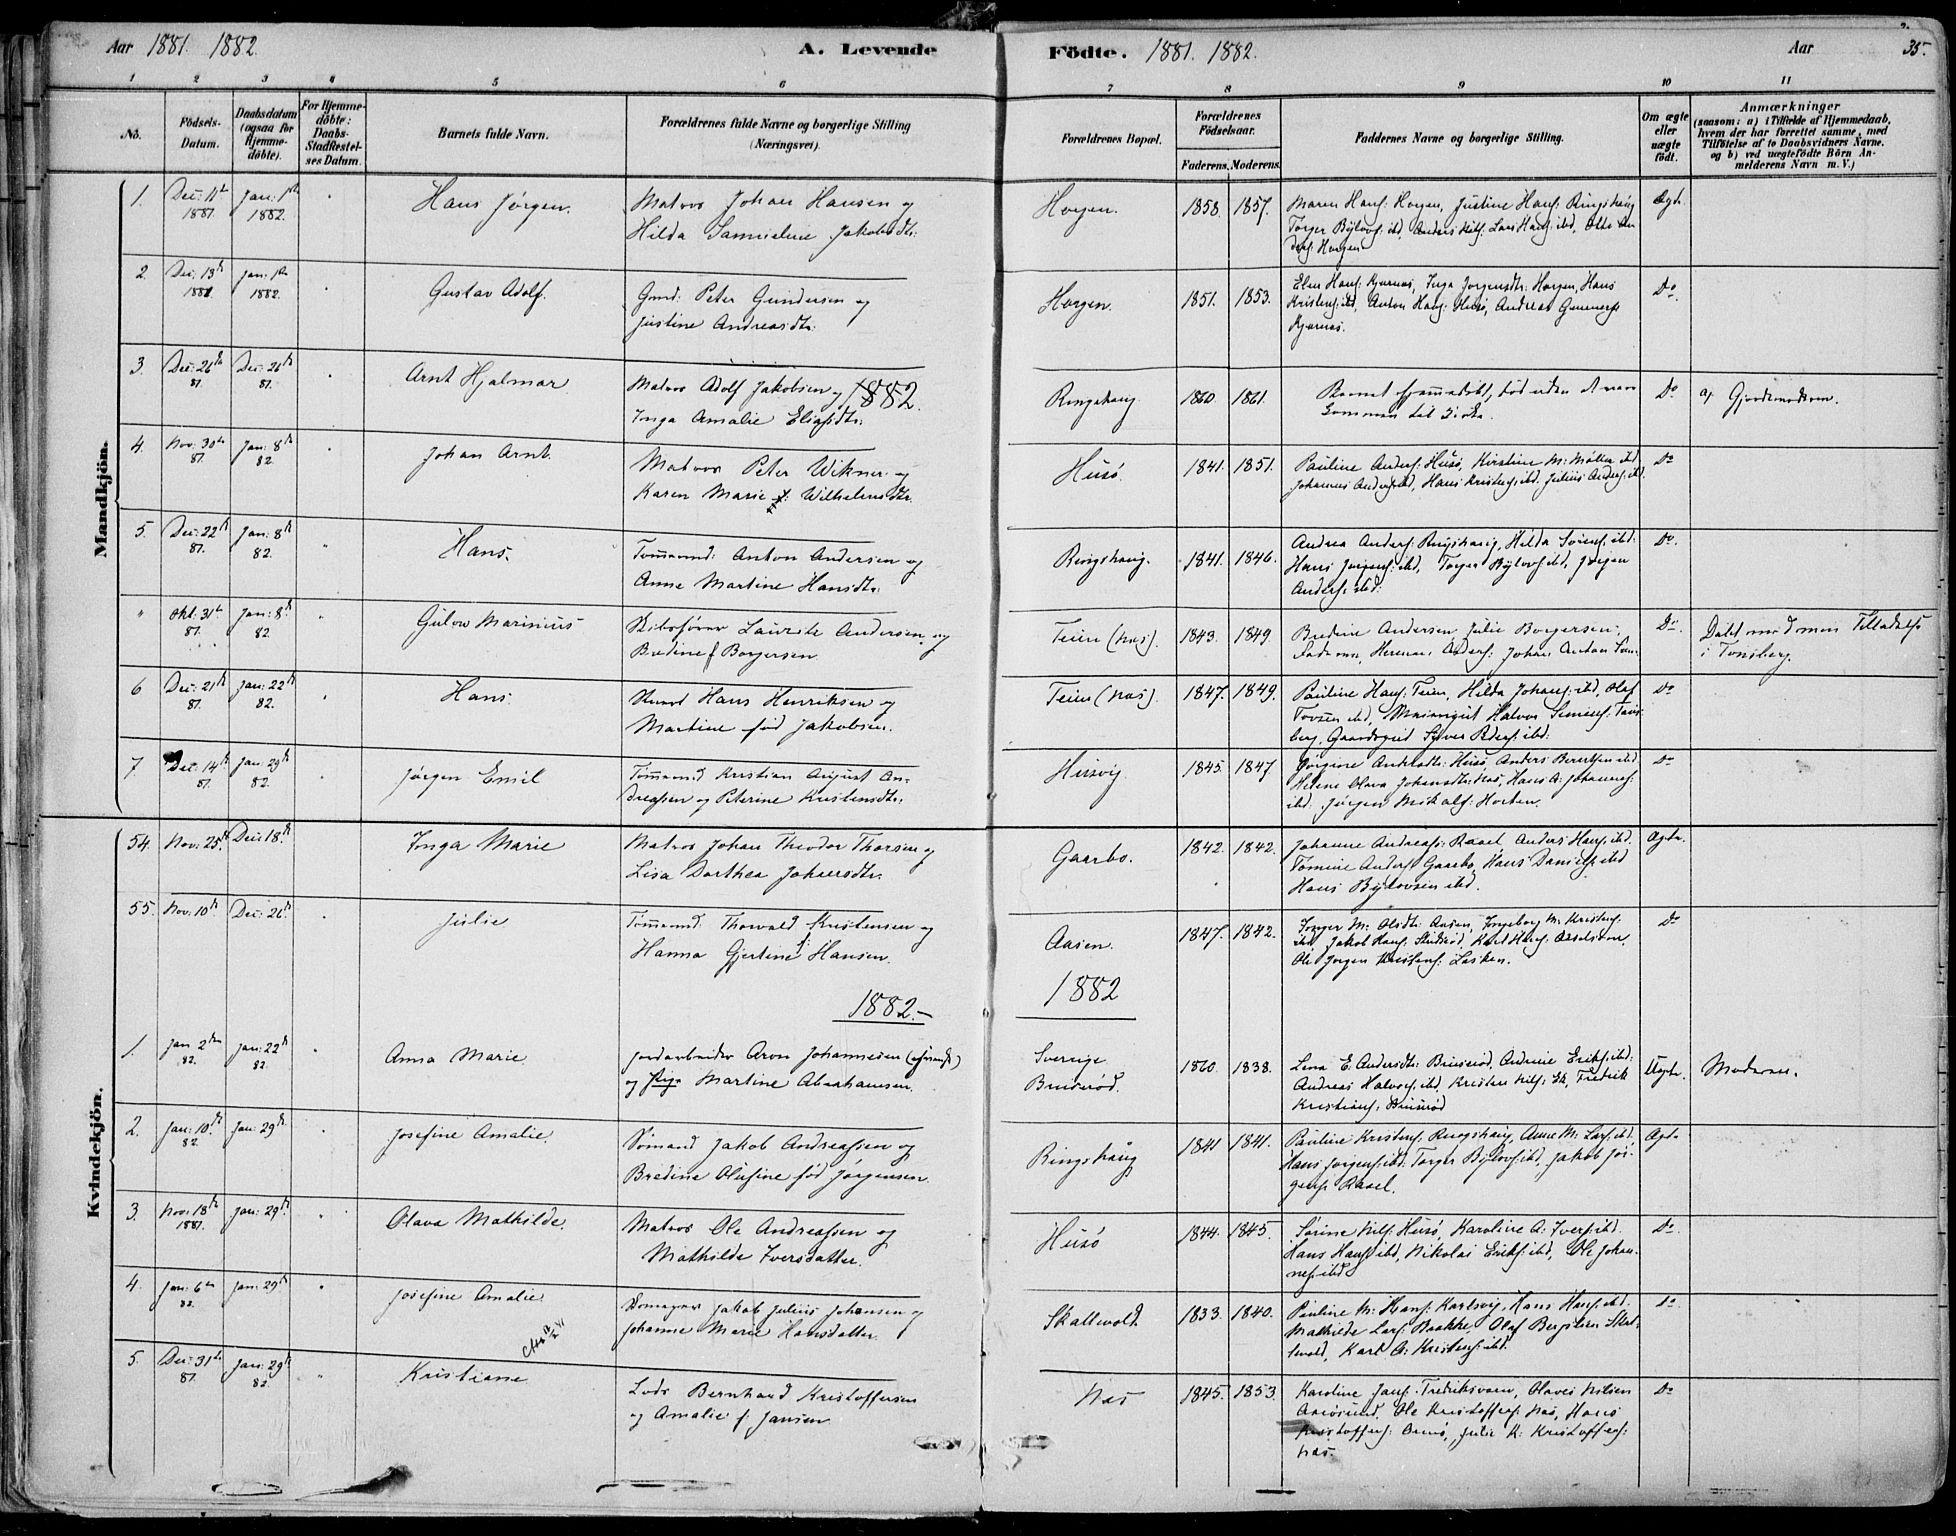 Aar 1881. 1882. A. Levende Födte. 1881. 1882. Aar 35.
1 2 3 4 5 6 7 8 9 10 11
No. Födsels-Datum. Daabsdatum (ogsaa for Hjemme-döbte). For Hjemme-döbte: Daabs-Stadfæstel-ses Datum. Barnets fulde Navn. Forældrenes fulde Navne og borgerlige Stilling (Næringsvei). Forældrenes Bopæl. Forældrenes Födselsaar. Faderens. Moderens. Faddernes Navne og borgerlige Stilling. Om ægte eller uægte födt. Anmærkninger (saasom: a) i Tilfælde af Hjemmedaab, hvem der har forrettet samme, med Tilföielse af to Daabsvidners Navne. og b) ved uægtefödte Börn An-melderens Navn m. V.)
Mandkjön.
1. Dec: 11te 1881. Jan: 1ste 1882. Hans Jørgen. Matros Johan Hansen og
Hilda Samueline Jakobsdtr: Horgen. 1858. 1857. Maren Hans: Horgen, Justine Hans: Ringshaug
Torger Bylovs: ibd, Anders Nils: Lars Hans: ibd, Otto An
ders: Horgen Ægte
2. Dec: 13de 1881 Jan: 1ste 1882. Gustav Adolf. Gmd: Peter Gundersen og
Justine Andreasdtr: Horgen. 1851. 1853. Elen Hans: Kjærnæs, Inga Jorgensdtr: Horgen, Hans
Kristens: ibd, Anton Hans: Husö, Andreas Gunners:
Kjærnæs. Do
3. Dec: 26de 81. Dec: 26de 81. Arnt Hjalmar Matros Adolf Jakobsen og 1882.
Inga Amalie Eliasdtr: Ringshaug 1860. 1861. Barnet hjemmedöbt, död uden at være
kommen til Kirke. Do a, Gjordemoderen.
4. Nov: 30te 81. Jan: 8de 82. Johan Arnt. Matros Peter Wikner og
Karen Marie f: Wilhelmsdtr. Husö. 1841. 1851. Pauline Anders: Husö, Kirstine M: Möller ibd
Johannes Anders: ibd, Hans Kristens: ibd. Julius Anders: ibd. Do
5. Dec: 22de 81. Jan: 8de 82. Hans. Tömmermd: Anton Andersen og
Anne Martine Hansdtr: Ringshaug. 1841. 1846. Andrea Anders: Ringshaug, Hilda Sörens: ibd:
Hans Jorgens: ibd, Torger Bylovs: ibd, Jorgen
Anders: ibd: Do.
" Okt: 31te 81. Jan: 8de 82. Gulow Marinius Skibsförer Laurits Andersen og
Bredine f Borgersen Teien (Næs). 1843. 1849. Bredine Andersen, Julie Borgersen,
Faderen, Herman Anders: Johan Anton Do. Döbt med min Tilladelse
i Tönsberg.
6 Dec: 21de 81. Jan: 22de 82. Hans. Hans Henriksen og
Martine föd Jakobsen. Teien (Næs). 1847. 1849. Pauline Hans: Teien, Hilda Johans: ibd, Olaf
ibd, Halvor Simens: Töns
berg, Syver Peders: ibd: Do
7 Dec: 14de 81. Jan: 29de 82. Jörgen Emil Tömmermd Kristian August An-
dreassen og Peterine Kristensdtr. Husvig. 1845. 1847. Jorgine Husö, Anders Berntsen ibd
Helene Olava Johansdtr: Næs, Hans A: Johannes:
ibd. Jörgen Mikals: Horten. Do
Kvindekjön.
54. Nov: 25de Dec: 18de Inga Marie Matros Johan Theodor Thorsen og
Lisa Dorthea Johansdtr. Gaarbo. 1842. 1842. Johanne Andreas: Rasel, Anders Hans: ibd.
Tomine Anders: Gaarbo, Hans Daniels: ibd
Hans Bylovsen ibd. Ægte.
55. Nov: 10de Dec: 26de Julie Tömmermd: Thorvald Kristensen og
Hanna Gjertine f Hansen. Aasen. 1847. 1842. Inger M: Olsdtr: Aasen, Ingeborg M: Kristens:
ibd, Jakob Hans: Karl Hans:
Ole Jorgen Kristens: Do
1882.- 1882
1. Jan 2den 82. Jan: 22de 82. Anna Marie Jordarbeider Aron Johannesen
og Pige Martine Abrahamsen. Sverige
Bruserød. 1860. 1838. Lena E. Andersdtr: Bruserød, Andrine Eriks: ibd:
Andreas Halvors: ibd, Kristen Nils: Ek, Fredrik
Kristians: Bruserød Uægte. Moderen.
2. Jan: 10de 82 Jan: 29de Josefine Amalie. Sömand Jakob Andreassen og
Bredine Olufine föd Jørgensen. Ringshaug 1841 1841. Pauline Kristens: Ringshaug, Anne M: Lars: ibd,
Hans Jorgens: ibd: Torger Bylovs: ibd, Jakob Jör-
gens: Rasel. Ægte
3. Nov: 18de 1881. Jan: 29de Olava Mathilde. Matros Ole Andreassen og
Mathilde Iversdatter. Husö 1844. 1845. Sörine Nils: Husö, Karoline A: Ivers: ibd.
Hans Hans: ibd, Nikolai Eriks: ibd, Ole Johan-
nes: ibd Do
4. Jan: 6te 82. Jan: 29de Josefine Amalie. Skomager Jakob Julius Johansen og
Johanne Marie Hansdatter. Skallevold. 1833. 1840. Pauline M: Hans: Karlsvig, Hans Hans: ibd.
Mathilde Lars: Bakke, Olaf Bergsteen Skal-
levold, Karl A: Kristens: ibd. Do
5. Dec: 31te 81. Jan: 29de 82. Kristiane Lods Bernhard Kristoffersen
og Amalie f. Jansen Næs 1845. 1853. Karoline Jans: Fredriksværn, Olaves Nilsen
Aarösund, Ole Kristoffers: Næs, Hans
Kristoffers: Arnö, Julie K: Kristoffers:
Næs. Do